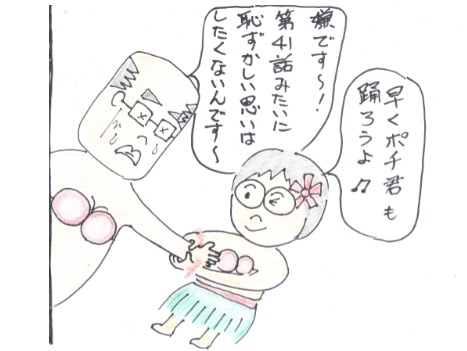 嫌です～!
第41話みたいに
恥ずかしい思いは
したくないんです～
早くポチ君も
踊ろうよ♫